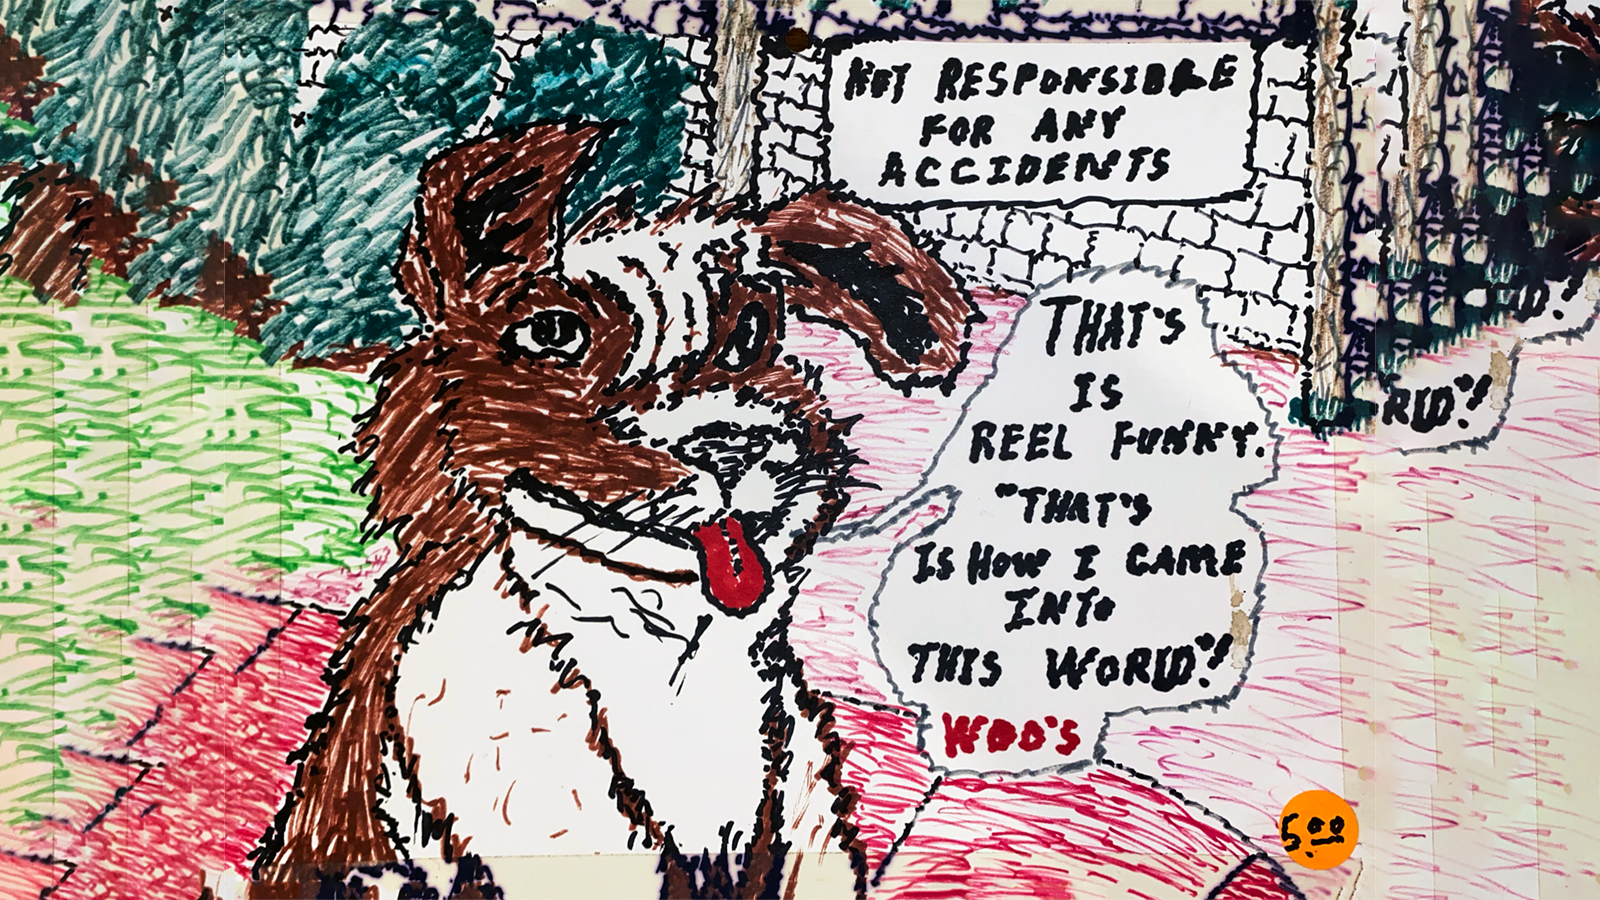 NOT RESPONSIBLE
FOR ANY
ACCIDENTS
THAT'S
IS
REEL FUNNY.
"THAT'S
IS HOW I CAME
INTO
THIS WORLD"!
WOO'S
RLD"!
D"!
5.00